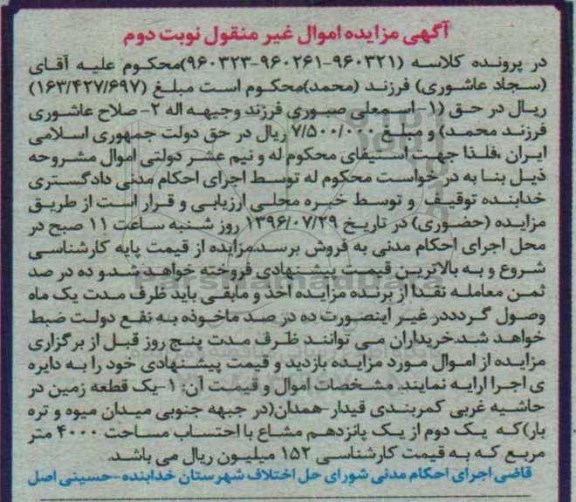 آگهی مزایده اموال غیر منقول نوبت دوم
در پرونده کلاسه (۹۶۰۳۲۱-۹۶۰۲۶۱-۹۶۰۳۲۳)محکوم علیه آقای
(سجاد عاشوری) فرزند (محمد)محکوم است مبلغ (۱۶۳/۴۲۷/۶۹۷)
ریال در حق (۱- اسمعلی صبوری فرزند وجیهه اله ۲- صلاح عاشوری
فرزند محمد) و مبلغ ۷/۵۰۰/۰۰۰ ریال در حق دولت جمهوری اسلامی
ایران ،فلذا جهت استیفای محکوم له و نیم عشر دولتی اموال مشروحه
ذیل بنا به در خواست محکوم له توسط اجرای احکام مدنی دادگستری
خدابنده توقیف و توسط خبره محلی ارزیابی و قرار است از طریق
مزایده (حضوری) در تاریخ ۱۳۹۶/۰۷/۲۹ روز شنبه ساعت ۱۱ صبح در
محل اجرای احکام مدنی به فروش برسد.مزایده از قیمت پایه کارشناسی
شروع و به بالاترین قیمت پیشنهادی فروخته خواهد شد.و ده در صد
ثمن معامله نقدا از برنده مزایده اخذ و مابقی باید ظرف مدت یک ماه
وصول گردددر غیر اینصورت ده در صد ماخوذه به نفع دولت ضبط
خواهد شد.خریداران می توانند ظرف مدت پنج روز قبل از برگزاری
مزایده از اموال مورد مزایده بازدید و قیمت پیشنهادی خود را به دایره
ی اجرا ارایه نمایند. مشخصات اموال و قیمت آن: ۱-یک قطعه زمین در
حاشیه غربی کمربندی قیدار-همدان(در جبهه جنوبی میدان میوه و تره
بار)که یک دوم از یک پانزدهم مشاع با احتساب مساحت ۴۰۰۰ متر
مربع که به قیمت کارشناسی ۱۵۲ میلیون ریال می باشد.
قاضی اجرای احکام مدنی شورای حل اختلاف شهرستان خدابنده -حسینی اصل